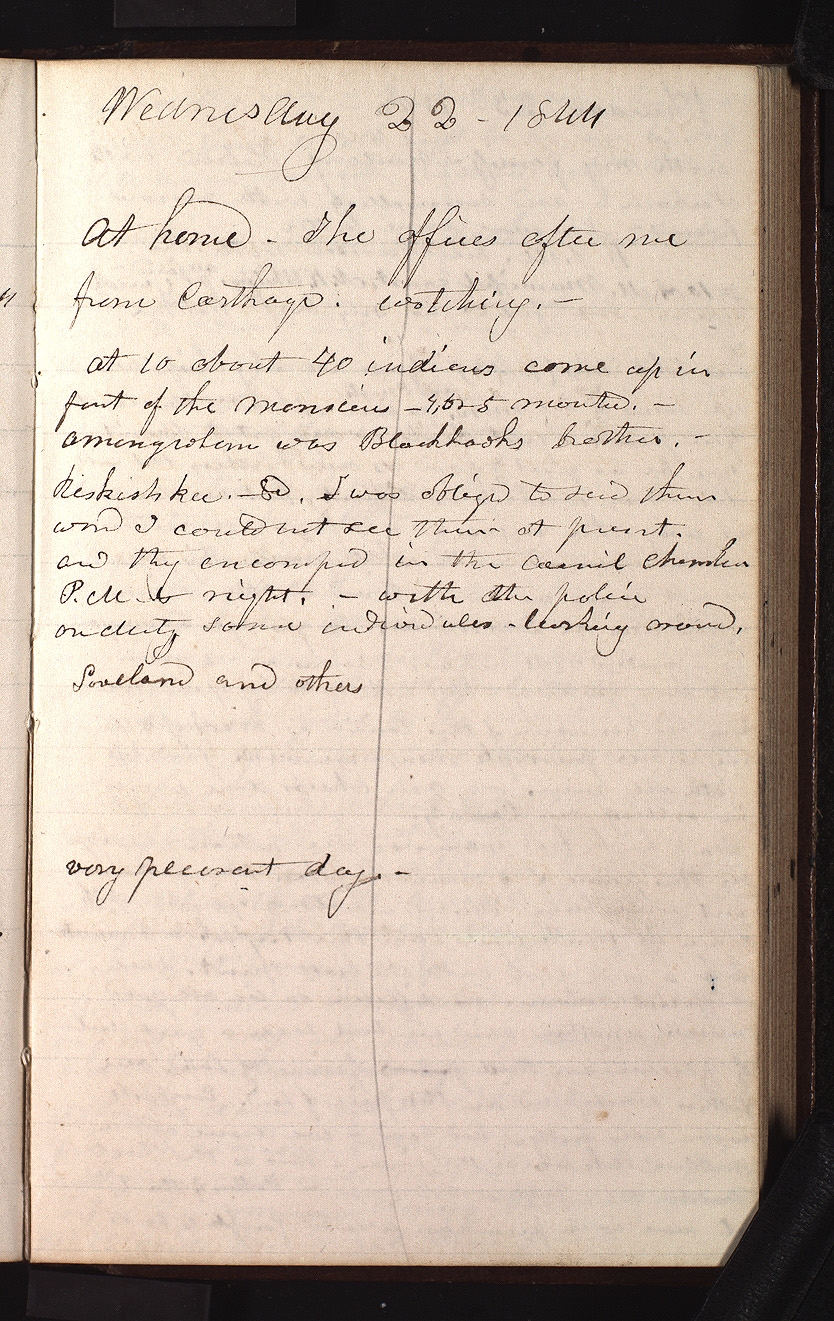 Wednesday 22 - 1844
At home - The officers after me
from Carthage. watching. -
at 10 about 40 indians come up in
front of the Mansion - 4, or 5 mounted. -
among them was Blackhawks brother. -
Kiskishkee. - &c. I was obliged to send them
word I could not see them at present.
and they encamped in the council chamber
P.M. & night. - with the police
on duty some individuals - lurking around.
Loveland and others
very pleasant day. -